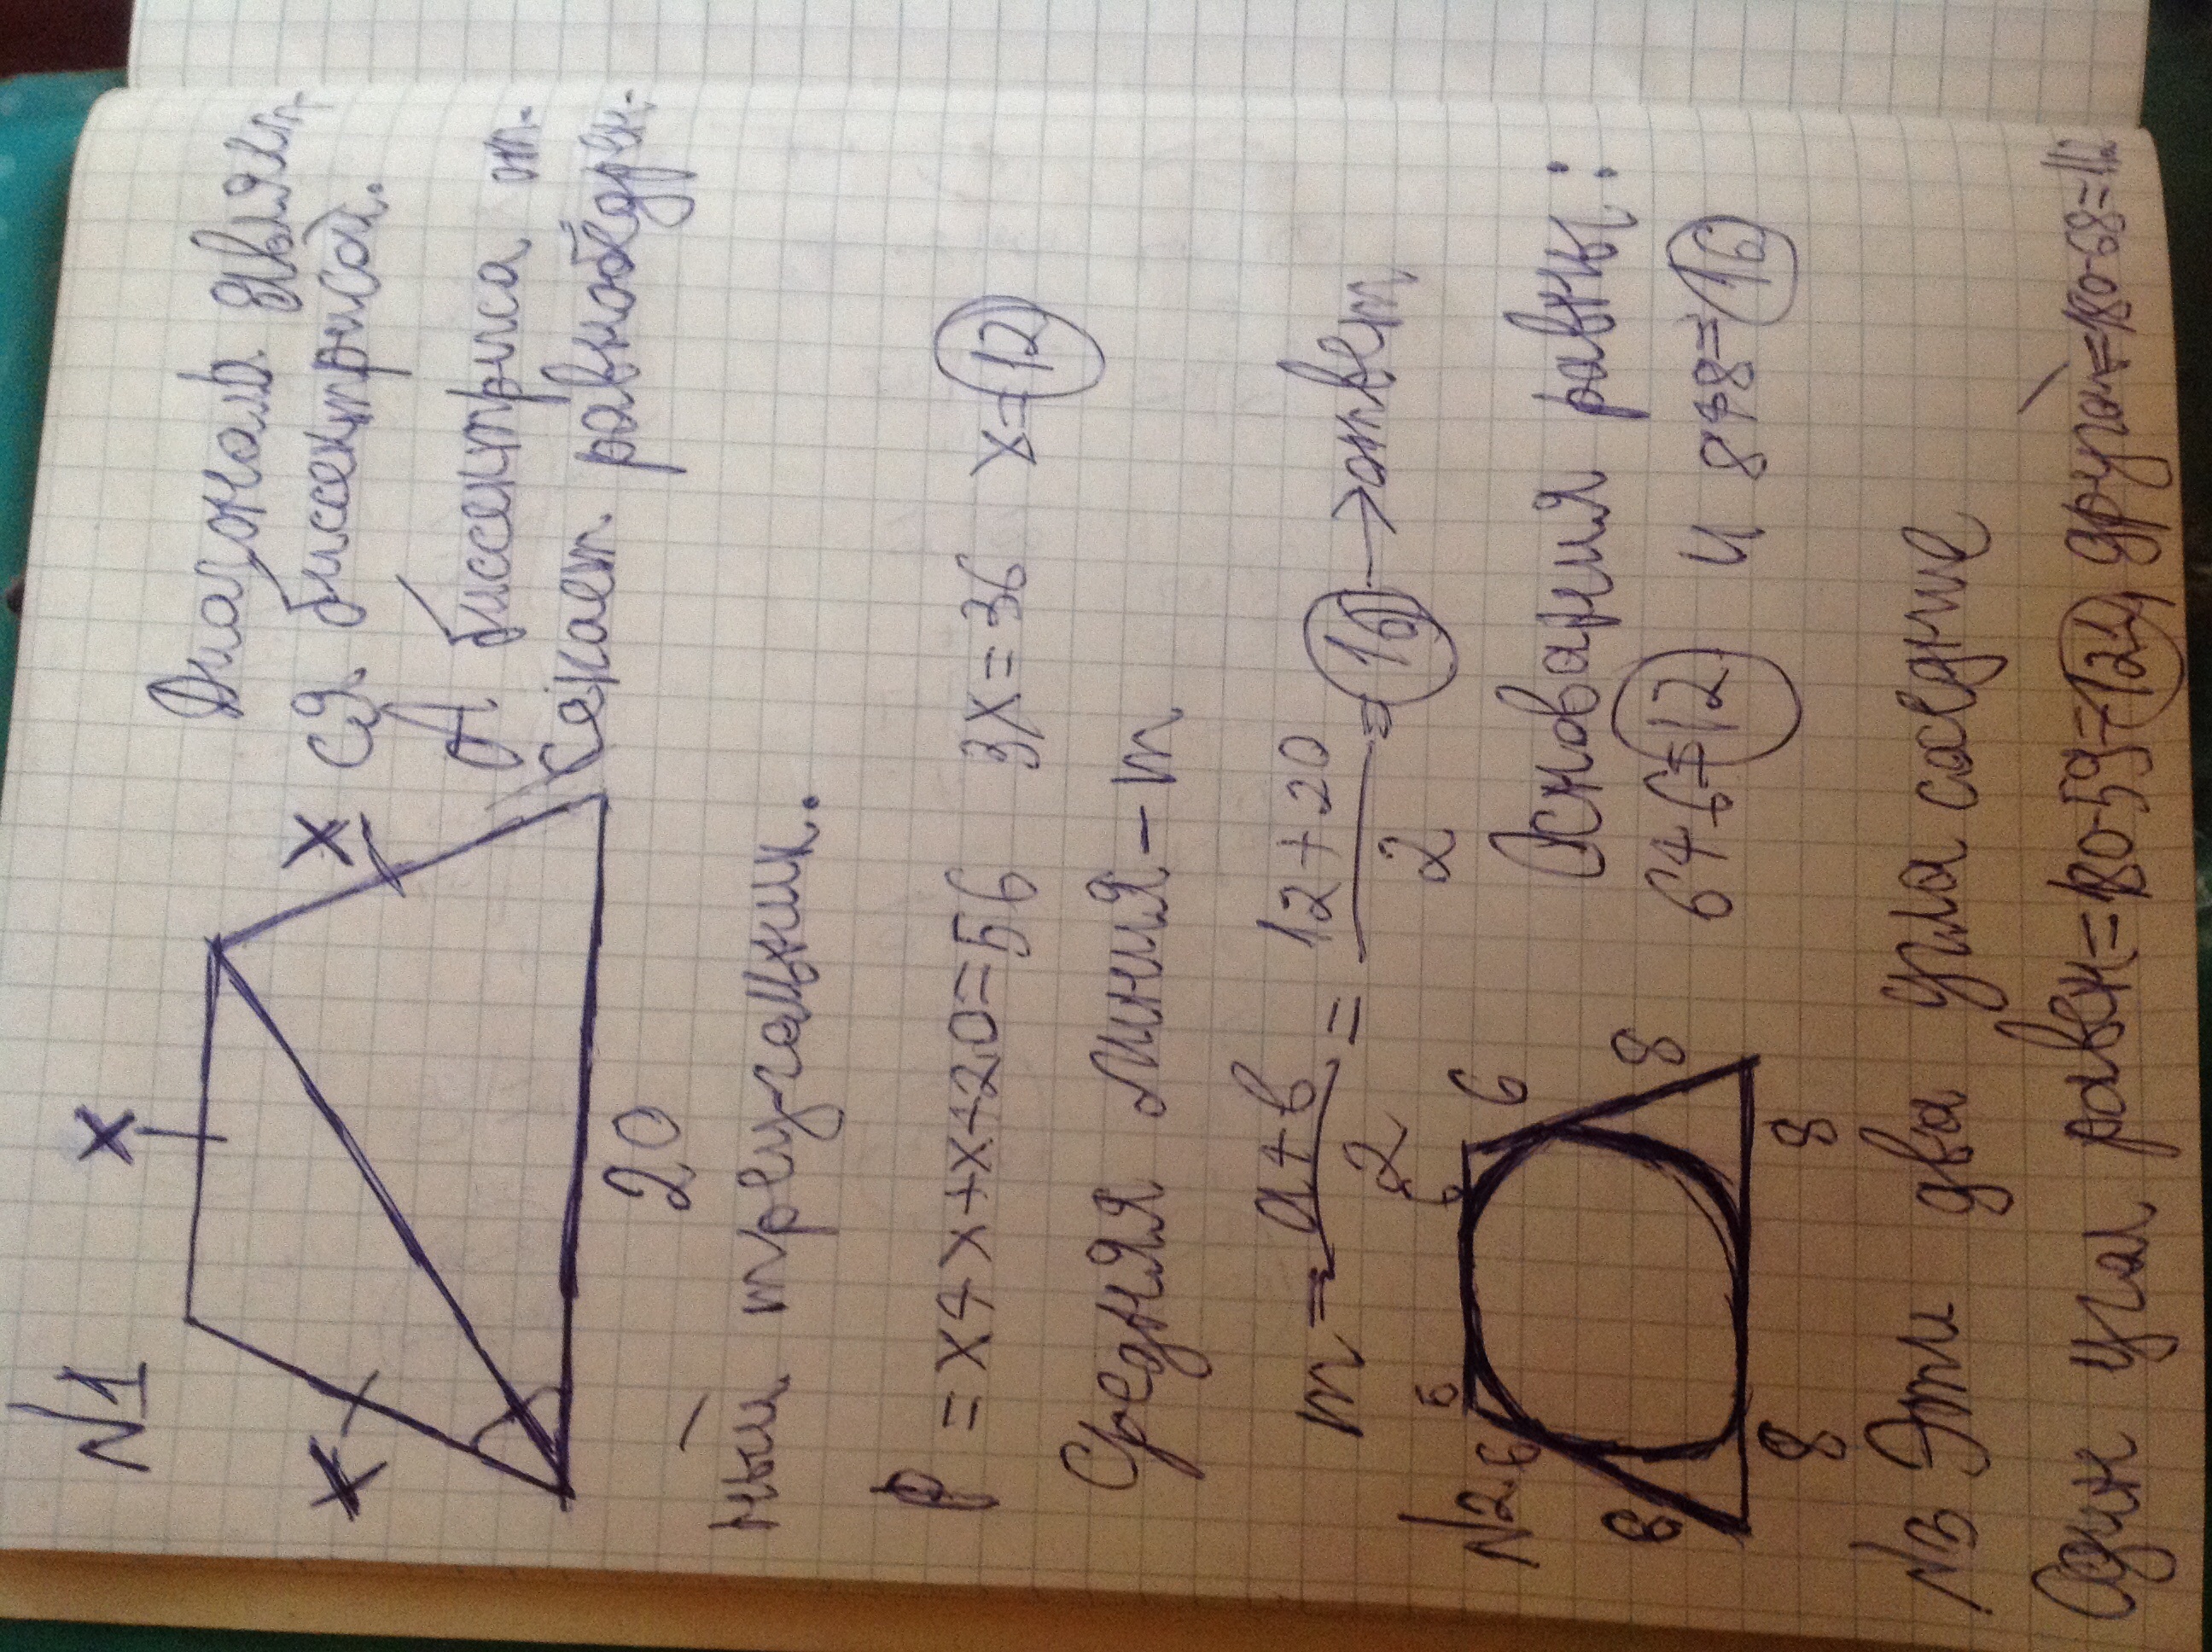 №1
x
x
x
20
Диагональ являет
ся биссектрисой.
А биссектриса от
секает равнобедрен-
ный треугольник.
P = x+x+x+20=56 3x=36 x=12
Средняя линия-m
m = a+b/2 = 12+20/2 = 16 → ответ
№2
6
6
6
6
8
8
8
8
Основания равны:
6+6=12 и 8+8=16
№3 Эти два угла соседние
Один угол равен=180-59=121, другой=180-68=112